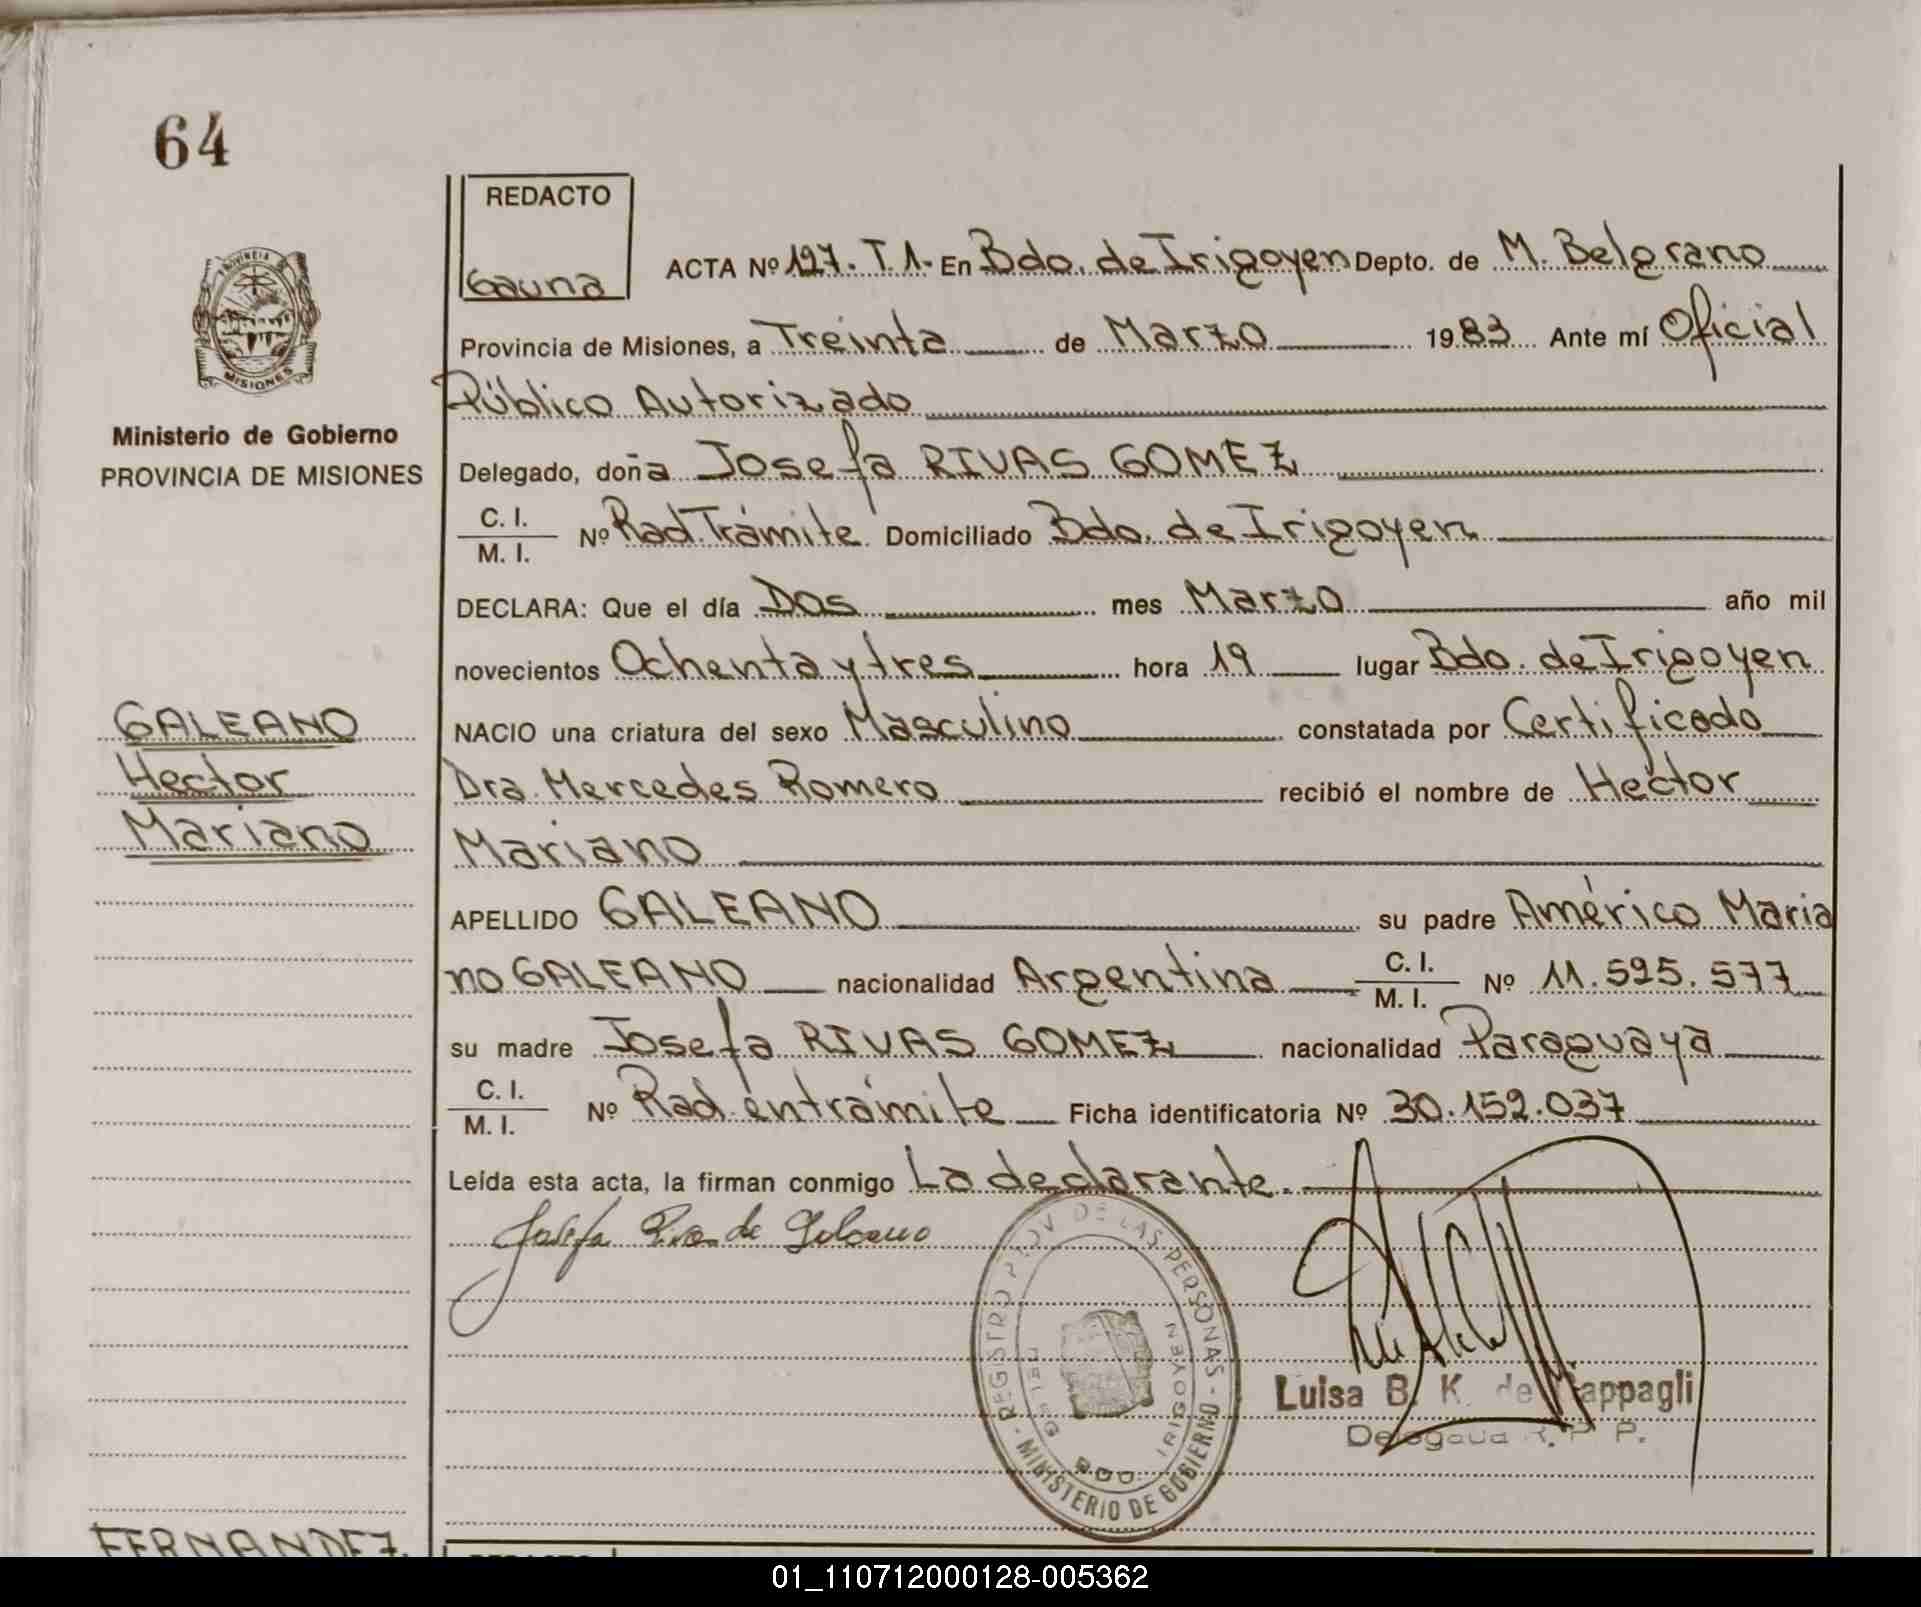 64
REDACTO
Gauna
PROVINCIA DE
MISIONES
Ministerio de Gobierno
PROVINCIA DE MISIONES
ACTA Nº 127. T. 1. En Bdo. de Irigoyen Depto. de M. Belgrano
Provincia de Misiones, a Treinta de Marzo 1983 Ante mí Oficial
Público Autorizado
Delegado, doña Josefa RIVAS GOMEZ
C. I.
M. I. Nº Rad. Trámite Domiciliado Bdo. de Irigoyen
DECLARA: Que el día Dos mes Marzo año mil
novecientos Ochenta y tres hora 19 lugar Bdo. de Irigoyen
NACIO una criatura del sexo Masculino constatada por Certificado
Dra. Mercedes Romero recibió el nombre de Hector
Mariano
GALEANO
Hector
Mariano
APELLIDO GALEANO su padre Américo Maria
no GALEANO nacionalidad Argentina C. I. M. I. Nº 11.595.577
su madre Josefa RIVAS GOMEZ nacionalidad Paraguaya
C. I.
M. I. Nº Rad. en trámite Ficha identificatoria Nº 30.152.037
Leída esta acta, la firman conmigo La declarante.
Josefa de Galeano
REGISTRO PROV. DE LAS PERSONAS - MINISTERIO DE GOBIERNO -
BDO. IRIGOYEN
Luisa B. K. de Mappagli
Delegada R. P. P.
FERNANDEZ
REDACTO
01_110712000128-005362